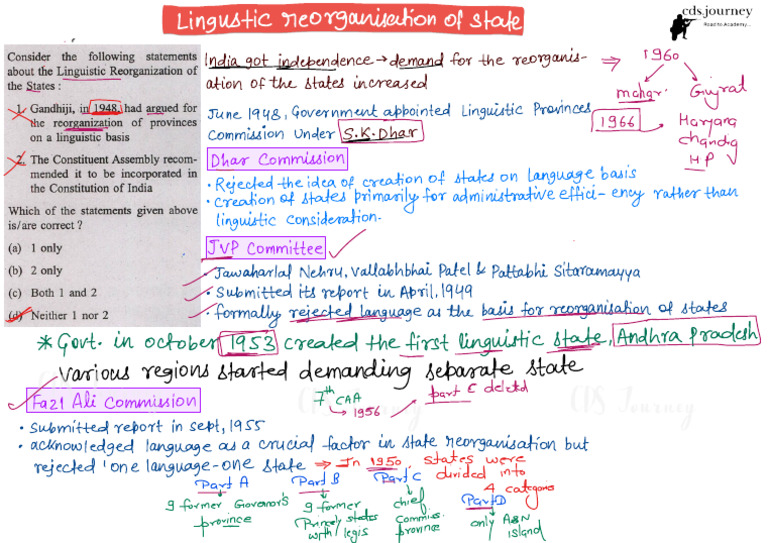 Lingustic reorganisation of state
cds.journey
Road to Academy...
Consider the following statements
about the Linguistic Reorganization of
the States :
1. Gandhiji, in 1948, had argued for
the reorganization of provinces
on a linguistic basis
2. The Constituent Assembly recom-
mended it to be incorporated in
the Constitution of India
Which of the statements given above
is/are correct ?
(a) 1 only
(b) 2 only
(c) Both 1 and 2
(d) Neither 1 nor 2
India got independence → demand for the reorganis-
ation of the states increased
⇒ 1960
mahar.
Gujrat
1966 → Haryana
chandig
HP
June 1948, Government appointed Linguistic Provinces
Commission under S.K.Dhar
Dhar Commission
• Rejected the idea of creation of states on language basis
• creation of states primarily for administrative effici-ency rather than
linguistic consideration.
JVP Committee
• Jawaharlal Nehru, Vallabhbhai Patel & Pattabhi Sitaramayya
• Submitted its report in April, 1949
• formally rejected language as the basis for reorganisation of states
* Govt. in october 1953 created the first linguistic state, Andhra pradesh
Various regions started demanding separate state
7th CAA
→ 1956
part E deleted
Fazl Ali Commission
CDS Journey
• Submitted report in sept, 1955
• acknowledged language as a crucial factor in state reorganisation but
rejected 'one language-one state
⇒ In 1950, states were
divided into
4 categories
Part A
9 former Governor's
province
Part B
9 former
Princely states
with legis
Part C
chief
commiss.
province
Part D
only A&N
island